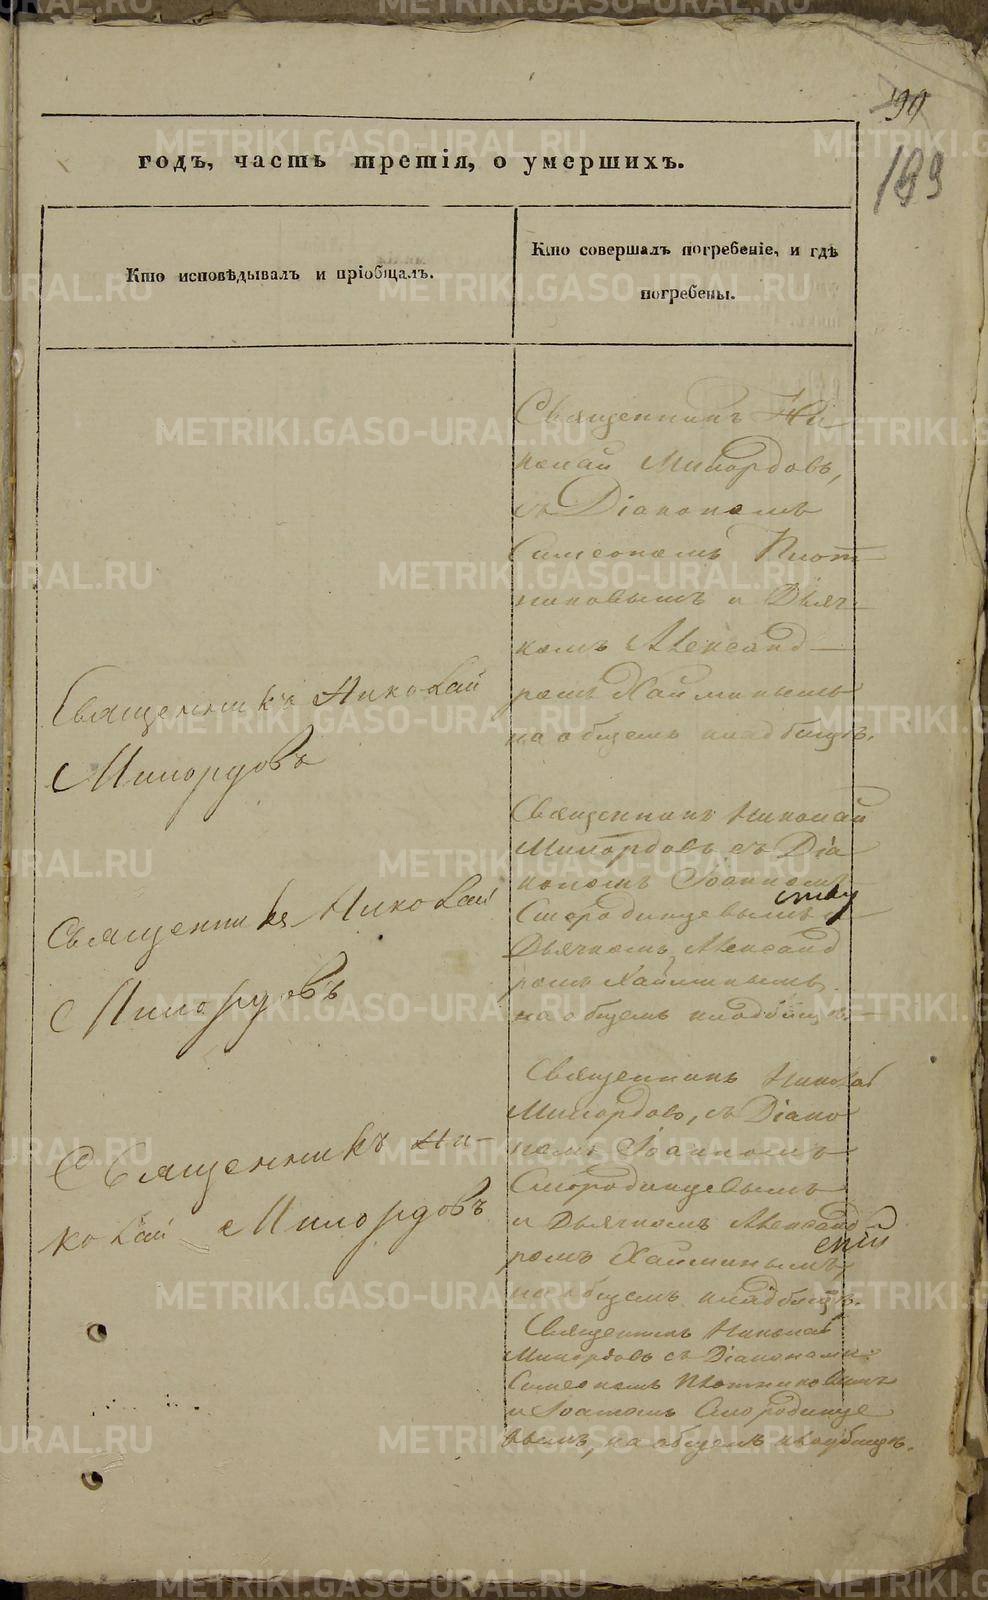 199
189
годъ, часть третія, о умершихъ.
Кто исповѣдывалъ и пріобщалъ.
Кто совершалъ погребеніе, и гдѣ
погребены.
Священникъ Ни
колай Милордовъ,
съ Діакономъ
Симеономъ Плот
никовымъ и Дьяч-
комъ Александ—
ромъ Хайминымъ
на общемъ кладбищѣ.
Священникъ Николай
Милордовъ
Священникъ Николай
Милордовъ съ Діа
кономъ Іоанномъ
Смородинцевымъ и
Дьячкомъ Александ
ромъ Хайминымъ,
на общемъ кладбищѣ.—
Священникъ Николай
Милордовъ
Священникъ Николай
Милордовъ, съ Діако
номъ Іоанномъ
Смородинцевымъ
и Дьячкомъ Александ
ромъ Хайминымъ,
на общемъ кладбищѣ.
Священникъ Ни-
колай Милордовъ
Священникъ Николай
Милордовъ съ Діаконами:
Симеономъ Плотниковымъ
и Іоанномъ Смородинце
вымъ, на общемъ кладбищѣ.
METRIKI.GASO-URAL.RU